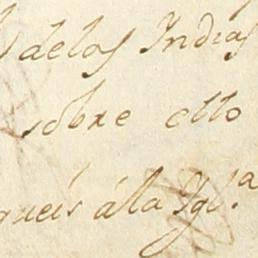 delas Indias
sobre esto
queis ála Igl.ª